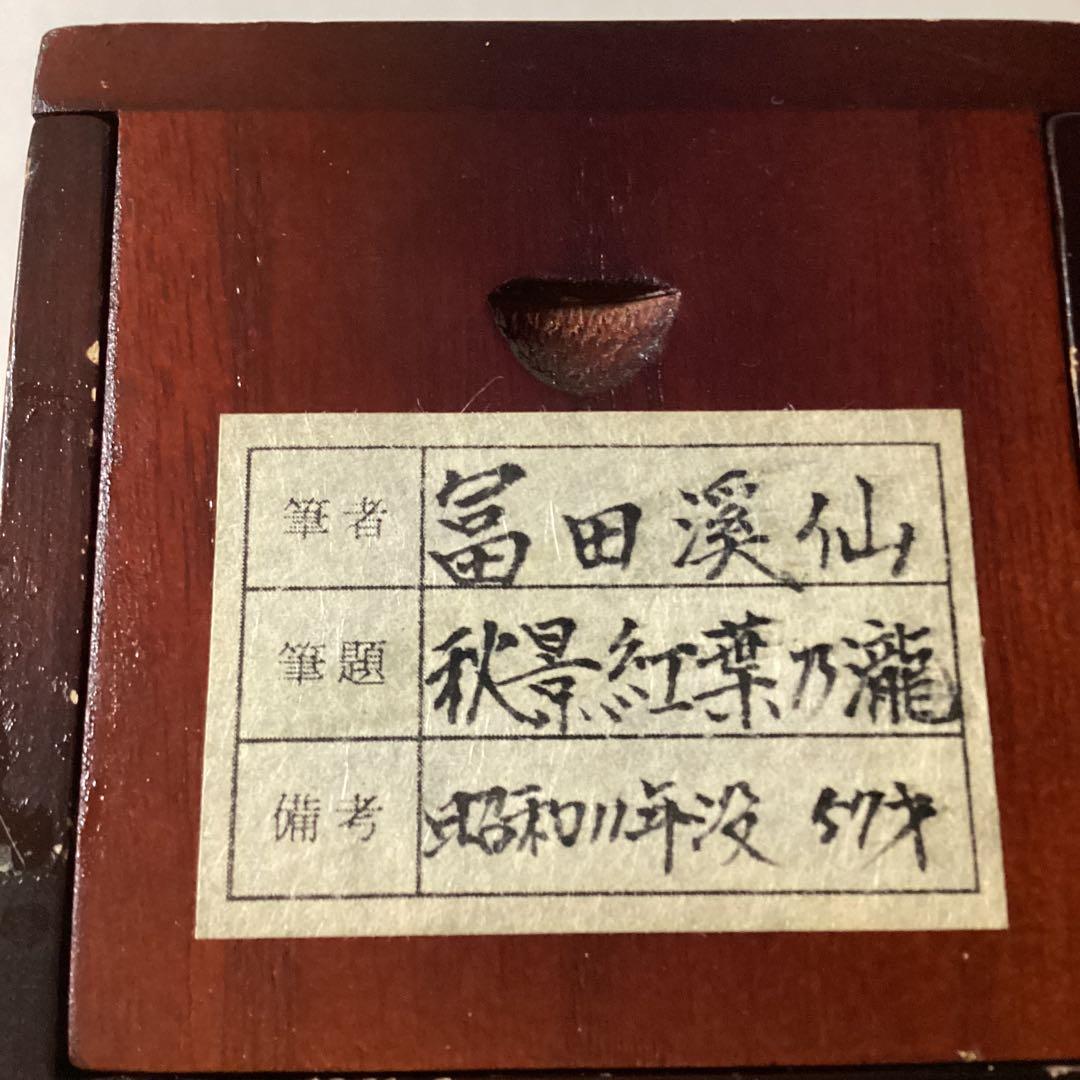 筆者 冨田溪仙
筆題 秋景紅葉乃瀧
備考 昭和11年没 57才